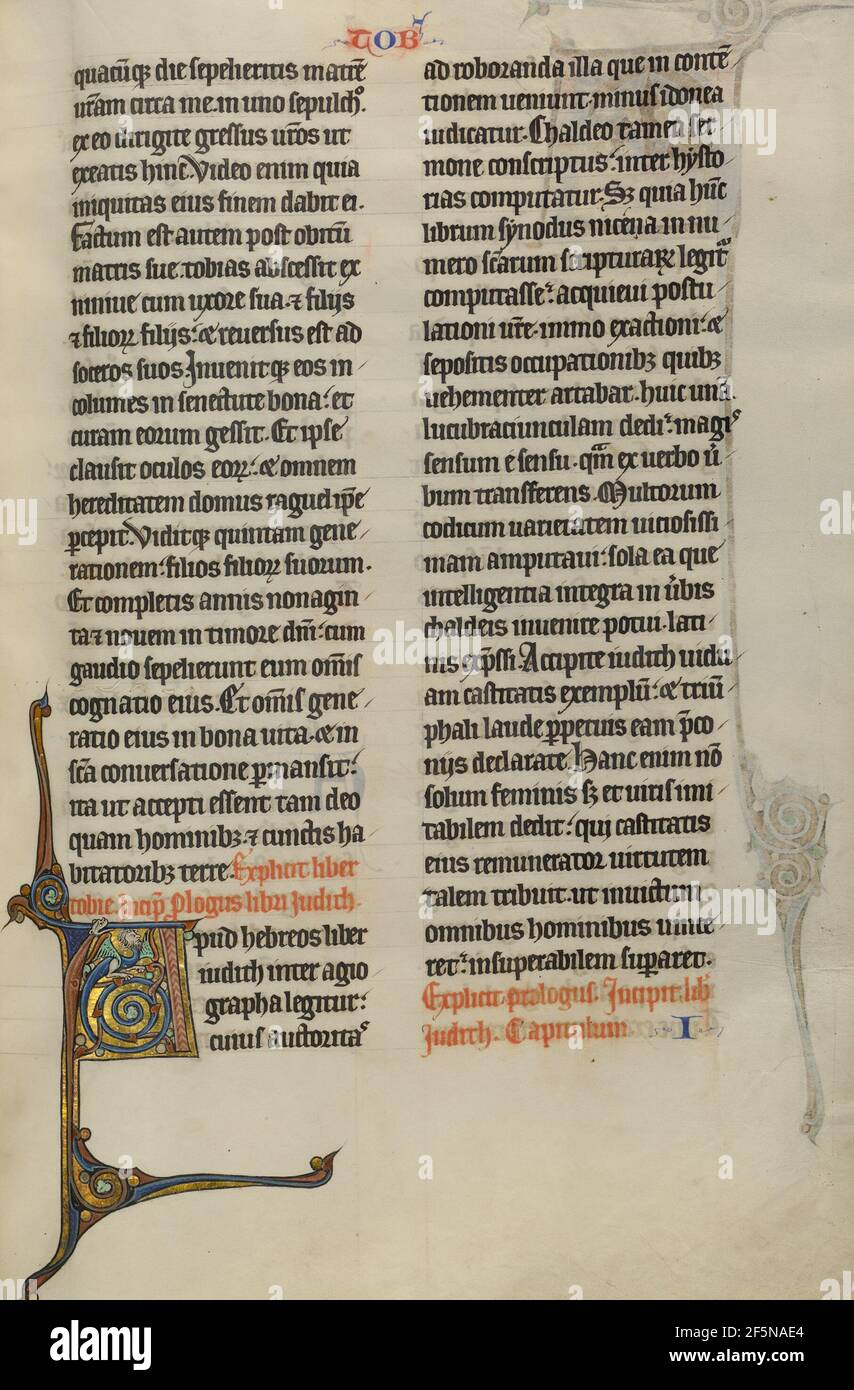 TOB
quacūq; die sepelieritis matrē
ur̄am circa me in uno sepulch°.
ex eo dirigite gressus ur̄os ut
exeatis hinc. Video enim quia
iniquitas eius finem dabit ei.
Factum est autem post obitū
matris sue: tobias abscessit ex
niniue cum uxore sua. ⁊ filijs
⁊ filioꝝ filijs: & reuersus est ad
soceros suos. Inuenitq; eos in
columes in senectute bona: et
curam eorum gessit. Et ipse
clausit oculos eoꝝ: & omnem
hereditatem domus raguel ip̄e
ꝑcepit. Viditq; quintam gene
rationem: filios filioꝝ suorum.
Et completis annis nonagin
ta ⁊ nouem in timore dn̄i: cum
gaudio sepelierunt eum om̄is
cognatio eius. Et om̄is gene
ratio eius in bona uita. & in
sc̄a conuersatione ꝑmansit:
ita ut accepti essent tam deo
quam hominibꝫ. ⁊ cunctis ha
bitatoribꝫ terre. Explicit liber
tobie. incip̄ Plogus libri Judith.
Apud hebreos liber
iudith inter agio
grapha legitur:
cuius auctoritas
ad roboranda illa que in contē
tionem ueniunt. minus idonea
iudicatur. Chaldeo tamen ser
mone conscriptus: inter hysto
rias computatur. Sꝫ quia hūc
librum synodus nicena in nu
mero sc̄arum scripturaꝝ legit᷑
computasse: acquieui postu
lationi ur̄e. immo exactioni: &
sepositis occupationibꝫ quibꝫ
uehementer artabar. huic unā
lucubraciunculam dedi: magis
sensum e sensu. qm̄ ex uerbo ū
bum transferens. Multorum
codicum uarietatem uiciosissi
mam amputaui: sola ea que
intelligentia integra in ūbis
chaldeis inuenire potui. lati
nis exp̄ssi. Accipite iudith uidu
am castitatis exemplū: & triū
phali laude ꝑpetuis eam p̄co
nijs declarate. Hanc enim nō
solum feminis sꝫ et uiris imi
tabilem dedit: qui castitatis
eius remunerator uirtutem
talem tribuit. ut inuictum
omnibus hominibus uince
ret: insuperabilem suꝑaret.
Explicit. prologus. Incipit. lib̄
Judith. Capitulum. I
alamy
Image ID: 2F5NAE4
www.alamy.com